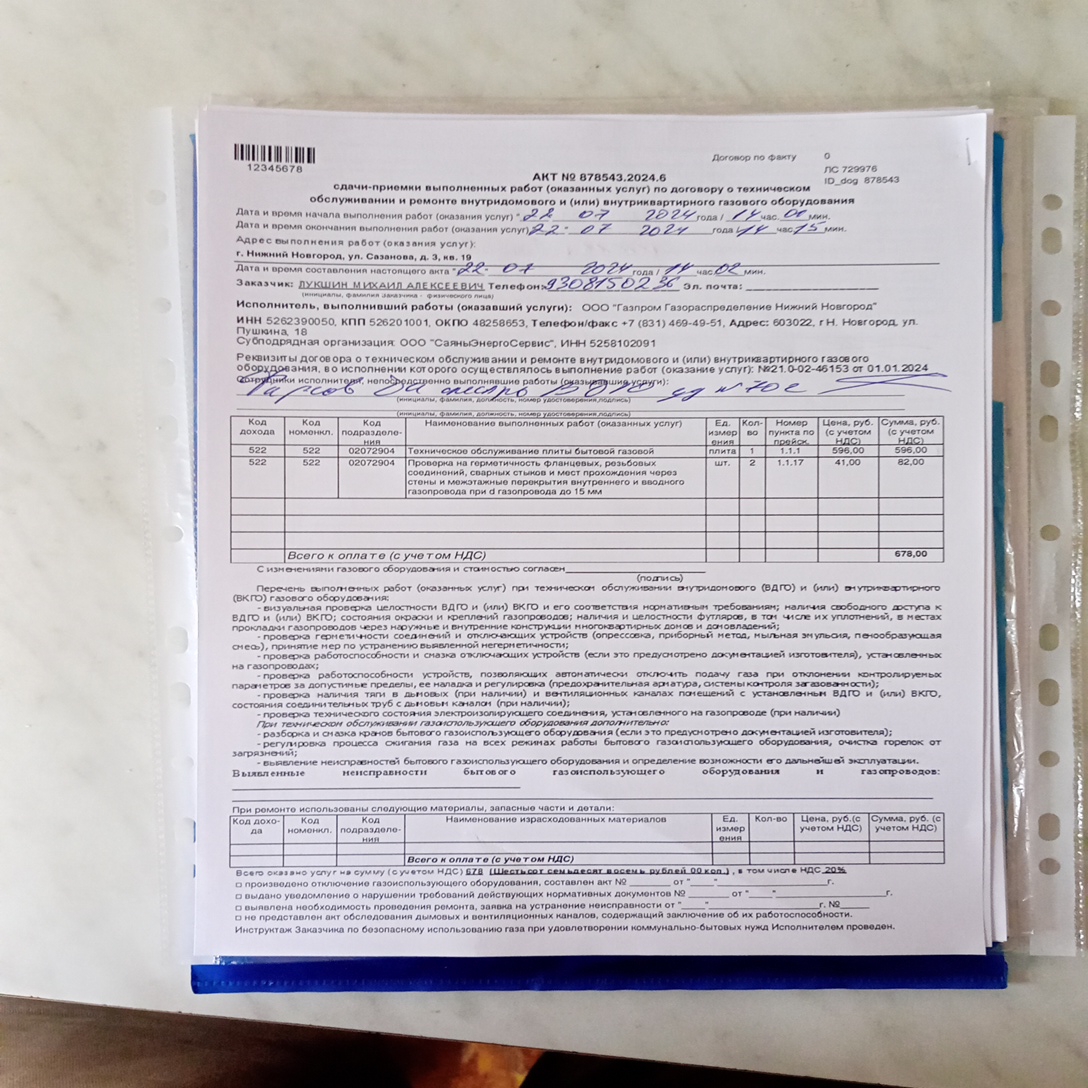 12345678
Договор по факту 0
ЛС 729976
ID_dog 878543
АКТ № 878543.2024.6
сдачи-приемки выполненных работ (оказанных услуг) по договору о техническом
обслуживании и ремонте внутридомового и (или) внутриквартирного газового оборудования
Дата и время начала выполнения работ (оказания услуг) " 22 07 2024 года / 14 час. 00 мин.
Дата и время окончания выполнения работ (оказания услуг) 22. 07 2024 года / 14 час 15 мин.
Адрес выполнения работ (оказания услуг):
г. Нижний Новгород, ул. Сазанова, д. 3, кв. 19
Дата и время составления настоящего акта " 22. 07 2024 года / 14 час 02 мин.
Заказчик: ЛУКШИН МИХАИЛ АЛЕКСЕЕВИЧ Телефон: 9308150236 Эл. почта:
(инициалы, фамилия Заказчика - физического лица)
Исполнитель, выполнивший работы (оказавший услуги): ООО "Газпром Газораспределение Нижний Новгород"
ИНН 5262390050, КПП 526201001, ОКПО 48258653, Телефон/факс +7 (831) 469-49-51, Адрес: 603022, г Н. Новгород, ул.
Пушкина, 18
Субподрядная организация: ООО "СаяныЭнергоСервис", ИНН 5258102091
Реквизиты договора о техническом обслуживании и ремонте внутридомового и (или) внутриквартирного газового
оборудования, во исполнении которого осуществлялось выполнение работ (оказание услуг): №21.0-02-46153 от 01.01.2024
Сотрудники исполнителя, непосредственно выполнявшие работы (оказывавшие услуги):
(инициалы, фамилия, должность, номер удостоверения,подпись)
(инициалы, фамилия, должность, номер удостоверения,подпись)
Код дохода Код номенкл. Код подразделе-ния Наименование выполненных работ (оказанных услуг) Ед. измер ения Кол-во Номер пункта по прейск. Цена, руб. (с учетом НДС) Сумма, руб. (с учетом НДС)
522 522 02072904 Техническое обслуживание плиты бытовой газовой плита 1 1.1.1 596,00 596,00
522 522 02072904 Проверка на герметичность фланцевых, резьбовых шт. 2 1.1.17 41,00 82,00
соединений, сварных стыков и мест прохождения через
стены и межэтажные перекрытия внутреннего и вводного
газопровода при d газопровода до 15 мм
Всего к оплате (с учетом НДС) 678,00
С изменениями газового оборудования и стоимостью согласен
(подпись)
Перечень выполненных работ (оказанных услуг) при техническом обслуживании внутридомового (ВДГО) и (или) внутриквартирного
(ВКГО) газового оборудования:
- визуальная проверка целостности ВДГО и (или) ВКГО и его соответствия нормативным требованиям; наличия свободного доступа к
ВДГО и (или) ВКГО; состояния окраски и креплений газопроводов; наличия и целостности футляров, в том числе их уплотнений, в местах
прокладки газопроводов через наружные и внутренние конструкции многоквартирных домов и домовладений;
- проверка герметичности соединений и отключающих устройств (опрессовка, приборный метод, мыльная эмульсия, пенообразующая
смесь), принятие мер по устранению выявленной негерметичности;
- проверка работоспособности и смазка отключающих устройств (если это предусмотрено документацией изготовителя), установленных
на газопроводах;
- проверка работоспособности устройств, позволяющих автоматически отключить подачу газа при отклонении контролируемых
параметров за допустимые пределы, ее наладка и регулировка (предохранительная арматура, системы контроля загазованности);
- проверка наличия тяги в дымовых (при наличии) и вентиляционных каналах помещений с установленным ВДГО и (или) ВКГО,
состояния соединительных труб с дымовым каналом (при наличии);
- проверка технического состояния электроизолирующего соединения, установленного на газопроводе (при наличии)
При техническом обслуживании газоиспользующего оборудования дополнительно:
- разборка и смазка кранов бытового газоиспользующего оборудования (если это предусмотрено документацией изготовителя);
- регулировка процесса сжигания газа на всех режимах работы бытового газоиспользующего оборудования, очистка горелок от
загрязнений;
- выявление неисправностей бытового газоиспользующего оборудования и определение возможности его дальнейшей эксплуатации.
Выявленные неисправности бытового газоиспользующего оборудования и газопроводов:
При ремонте использованы следующие материалы, запасные части и детали:
Код дохо-да Код номенкл. Код подразделе-ния Наименование израсходованных материалов Ед. измер ения Кол-во Цена, руб.(с учетом НДС) Сумма, руб. (с учетом НДС)
Всего к оплате (с учетом НДС)
Всего оказано услуг на сумму (с учетом НДС) 678 (Шестьсот семьдесят восемь рублей 00 коп.) , в том числе НДС 20%
□ произведено отключение газоиспользующего оборудования, составлен акт № от "____" г.
□ выдано уведомление о нарушении требований действующих нормативных документов № от "____" г.
□ выявлена необходимость проведения ремонта, заявка на устранение неисправности от "____" г. №
□ не представлен акт обследования дымовых и вентиляционных каналов, содержащий заключение об их работоспособности.
Инструктаж Заказчика по безопасному использованию газа при удовлетворении коммунально-бытовых нужд Исполнителем проведен.